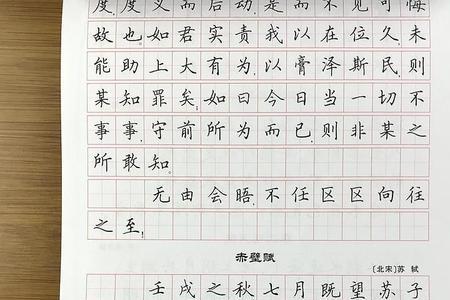 度,度义而后动,是而不见可悔
故也。如君实责我以在位久,未
能助上大有为,以膏泽斯民,则
某知罪矣;如曰今日当一切不
事事,守前所为而已,则非某之
所敢知。
无由会晤,不任区区向往
之至!
赤壁赋
〔北宋〕苏 轼
壬戌之秋,七月既望,苏子